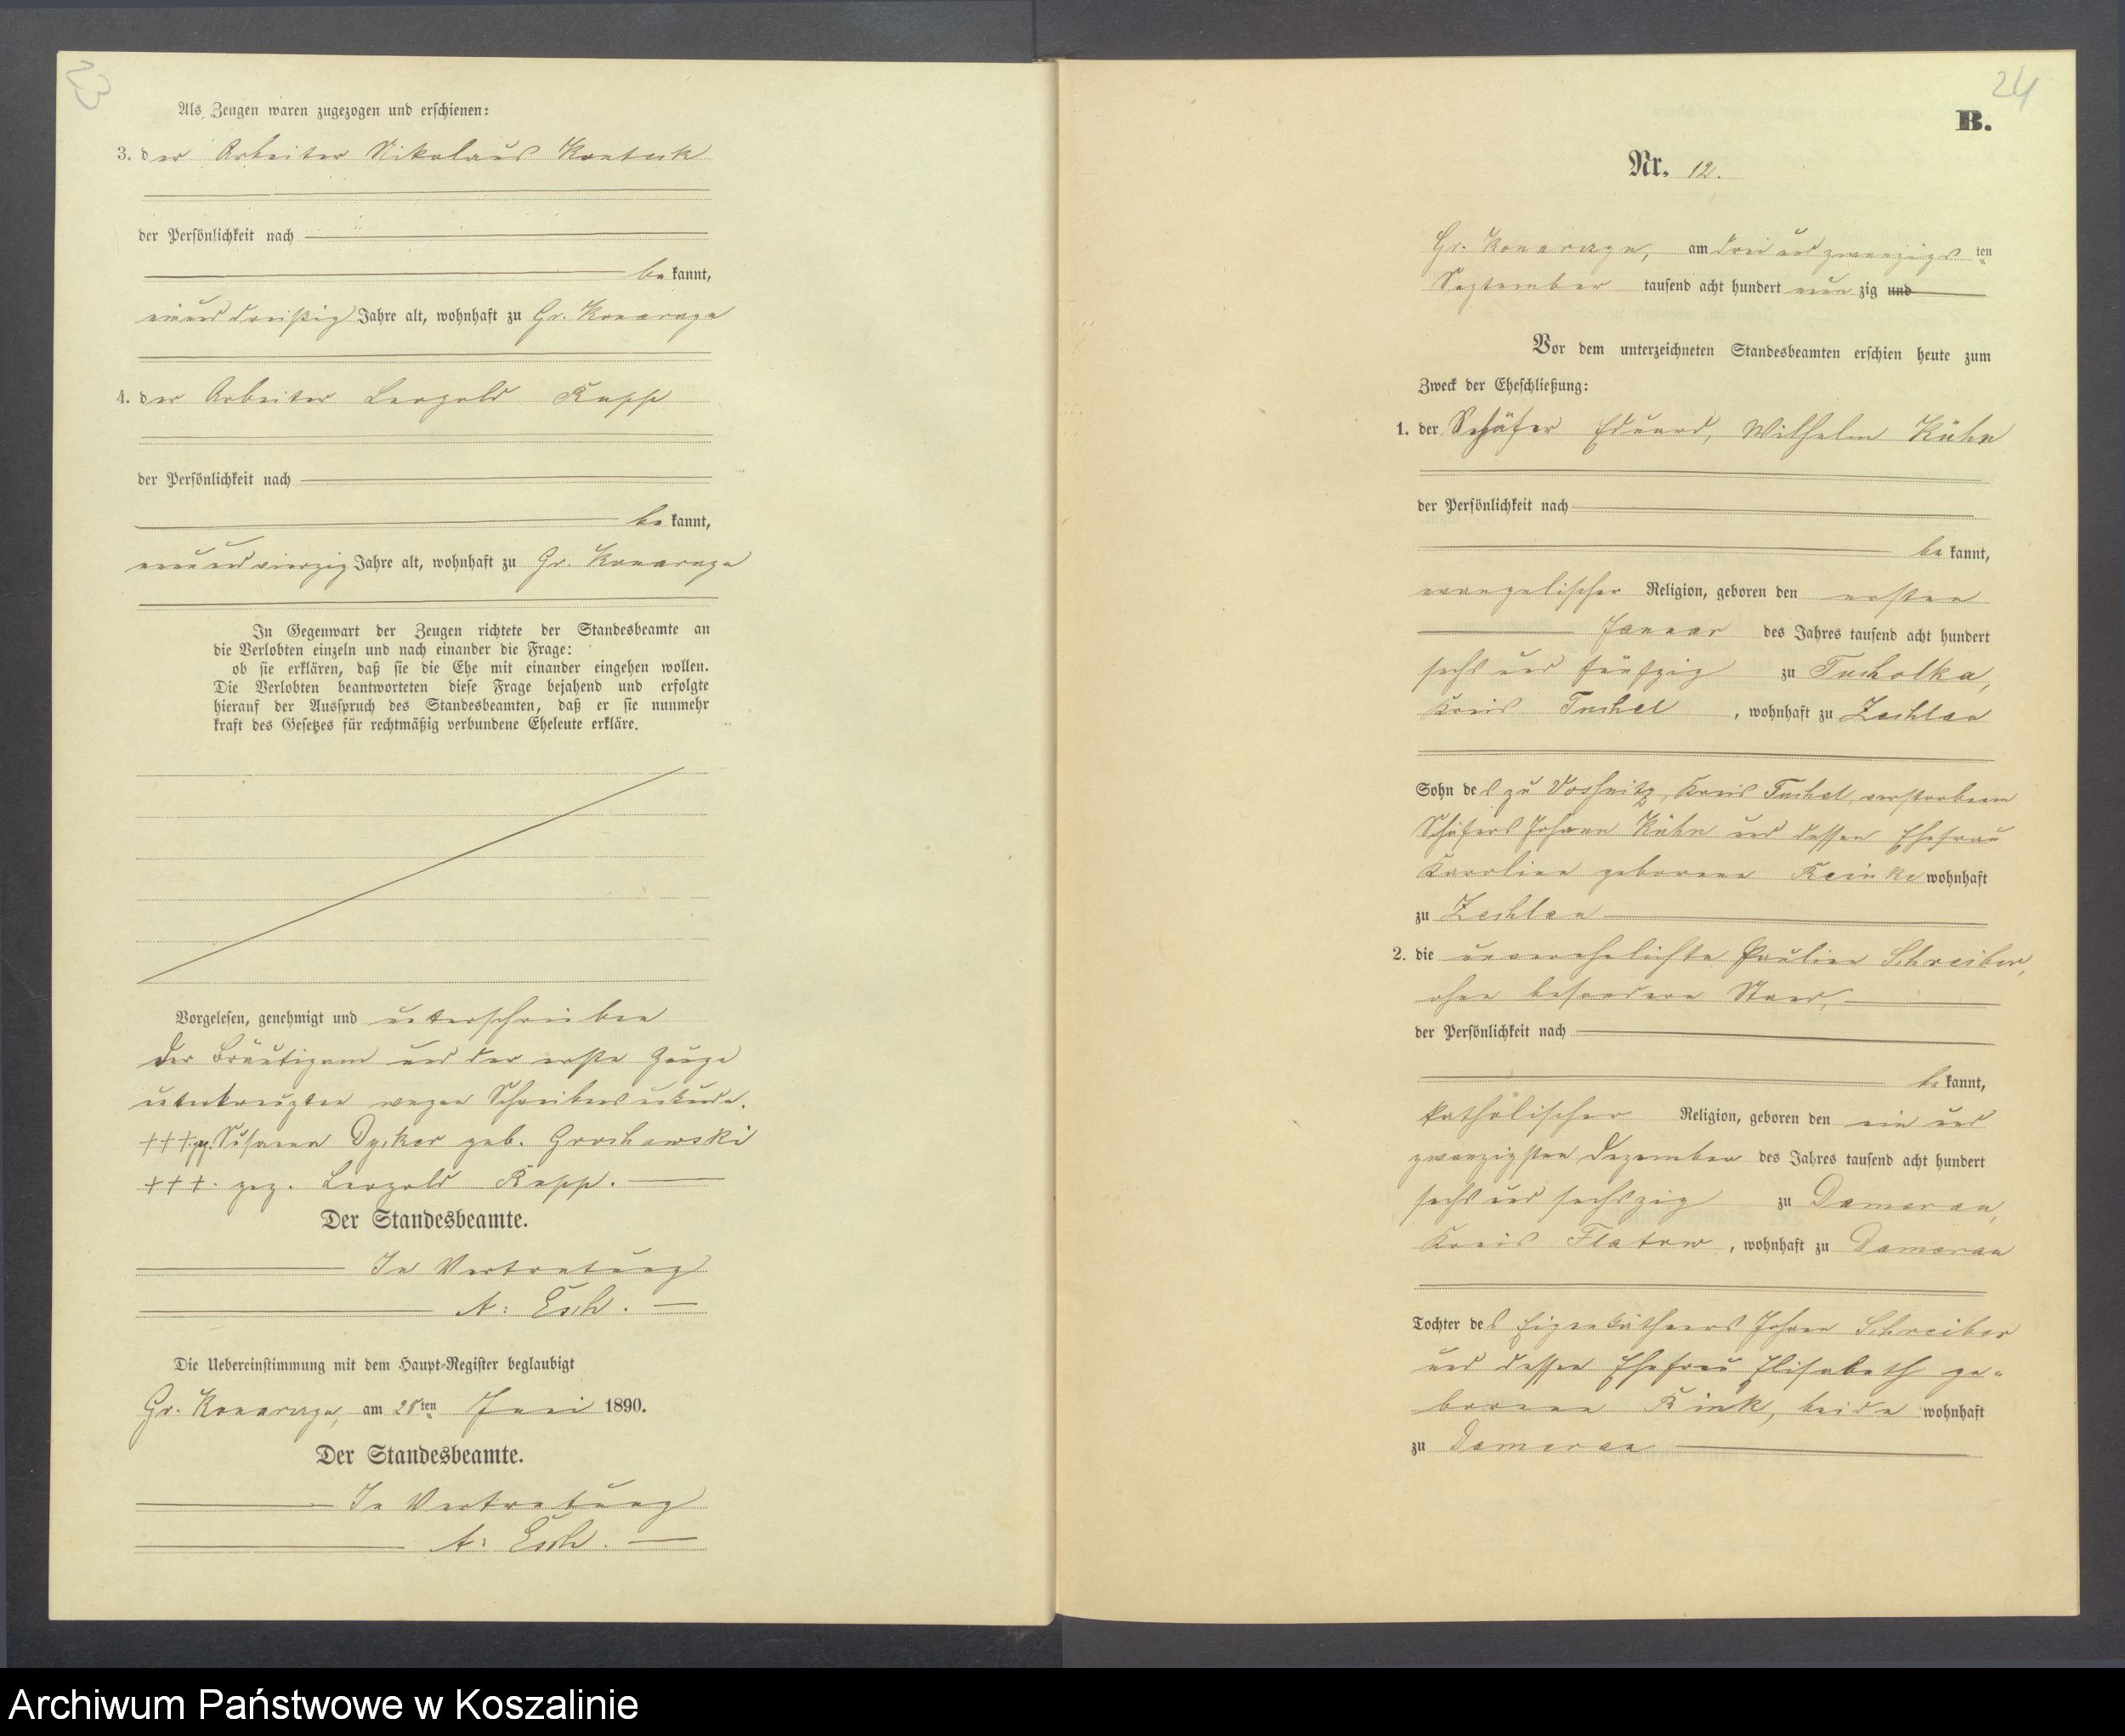 23
Als Zeugen waren zugezogen und erschienen:
3. der Arbeiter Nikolaus Kontack
der Persönlichkeit nach
be kannt,
einunddreißig Jahre alt, wohnhaft zu Gr. Konarzyn
4. der Arbeiter Leopold Rapp
der Persönlichkeit nach
be kannt,
neunundvierzig Jahre alt, wohnhaft zu Gr. Konarzyn
In Gegenwart der Zeugen richtete der Standesbeamte an
die Verlobten einzeln und nach einander die Frage:
ob sie erklären, daß sie die Ehe mit einander eingehen wollen.
Die Verlobten beantworteten diese Frage bejahend und erfolgte
hierauf der Ausspruch des Standesbeamten, daß er sie nunmehr
kraft des Gesetzes für rechtmäßig verbundene Eheleute erkläre.
Vorgelesen, genehmigt und unterschrieben
Der Bräutigam und der erste Zeuge
unterkreuzten wegen Schreibensunkunde.
+++ gez. Susanna geb. Grochowski
+++. gez. Leopold Rapp.
Der Standesbeamte.
In Vertretung
A: Esch.
Die Uebereinstimmung mit dem Haupt-Register beglaubigt
Gr. Konarzyn, am 28ten Juni 1890.
Der Standesbeamte.
In Vertretung
A: Esch.
24
B.
Nr. 12.
Gr. Konarzyn, am drei und zwanzigs ten
September tausend acht hundert neun zig und
Vor dem unterzeichneten Standesbeamten erschien heute zum
Zweck der Eheschließung:
1. der Schäfer Eduard, Wilhelm Kühn
der Persönlichkeit nach
be kannt,
evangelischer Religion, geboren den ersten
Januar des Jahres tausend acht hundert
sechs und fünfzig zu Tucholka,
Kreis Tuchel, wohnhaft zu Zechlau
Sohn des zu Kreis Tuchel, verstorbenen
Schäfers Johann Kühn und dessen Ehefrau
Karoline geborene Reinke wohnhaft
zu Zechlau
2. die unverehelichte Pauline Schreiber,
ohne besonderen Stand,
der Persönlichkeit nach
be kannt,
katholischer Religion, geboren den ein und
zwanzigsten Dezember des Jahres tausend acht hundert
sechs und sechszig zu Damerau,
Kreis Flatow, wohnhaft zu Damerau
Tochter des Eigenkäthners Johann Schreiber
und dessen Ehefrau Elisabeth ge-
borene Rink, beide wohnhaft
zu Damerau
Archiwum Państwowe w Koszalinie